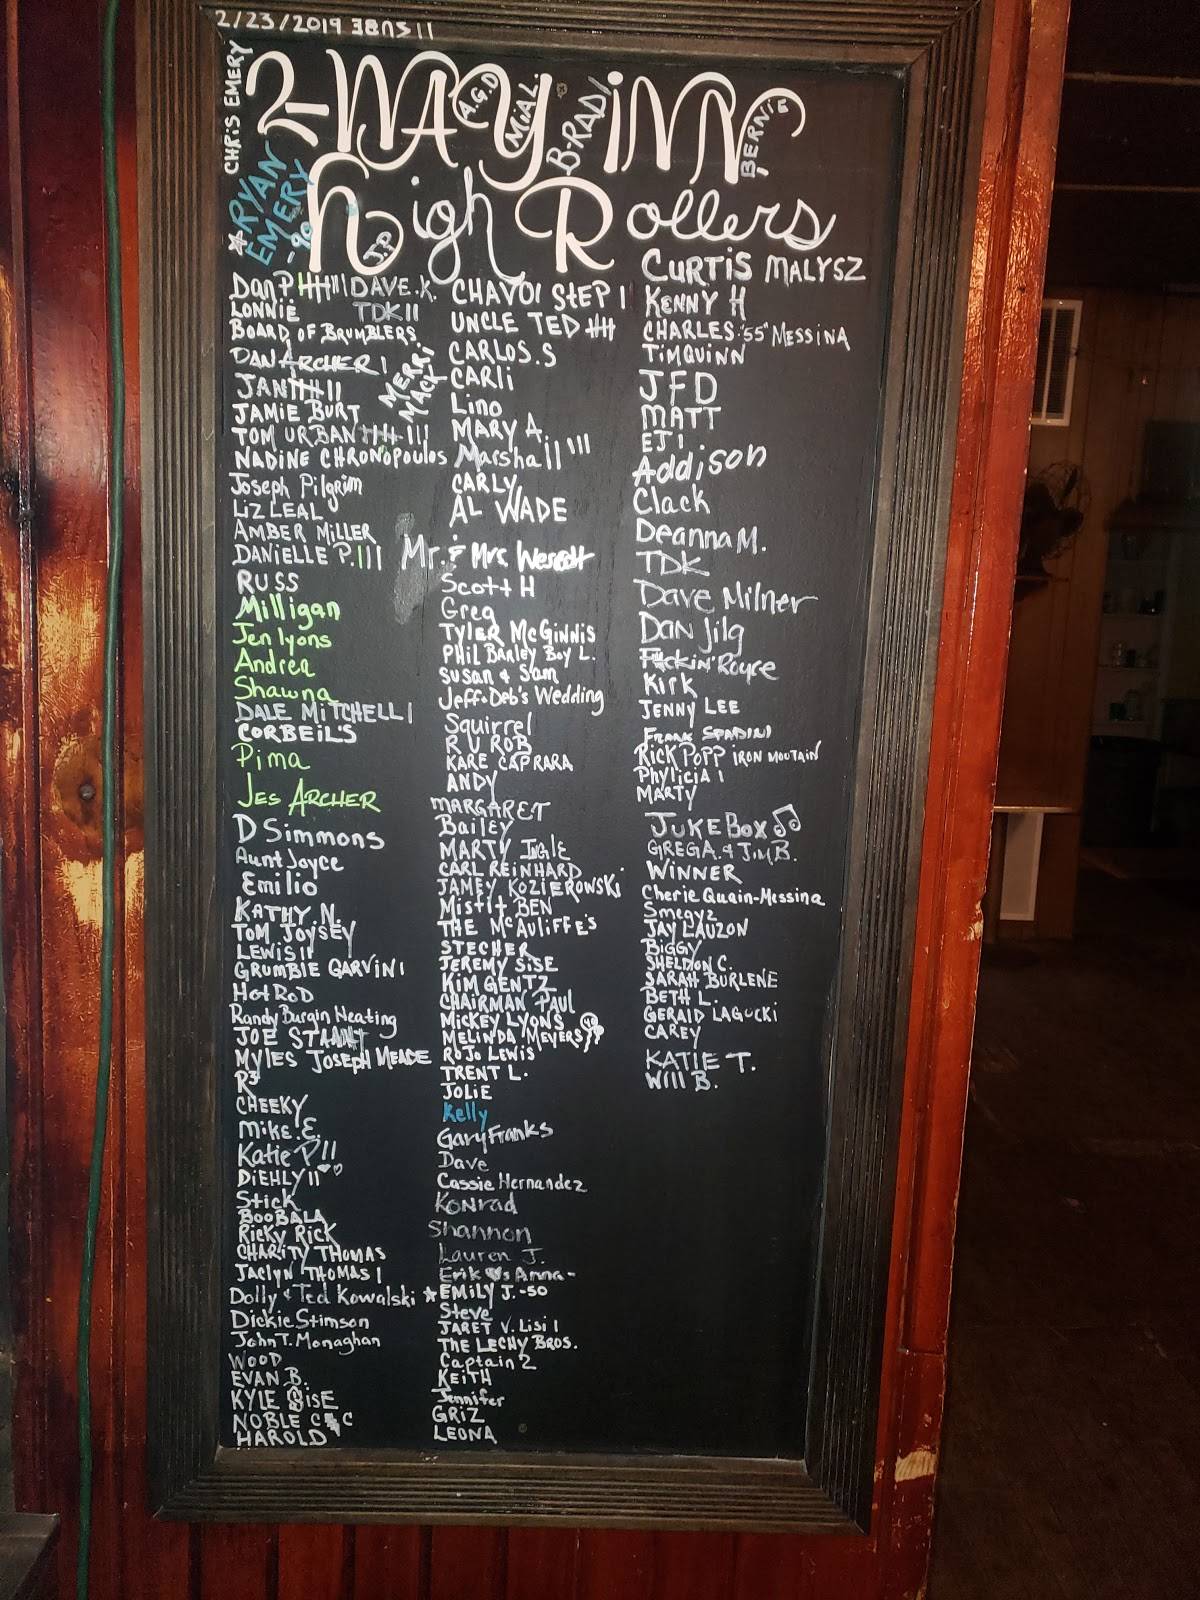 2/23/2019
CHRIS EMERY
2-WAY INN
A.G.D
B-RAD
BERNIE
High Rollers
J.P
★RYAN EMERY
DAN P
DAVE.K.
LONNIE TDK II
BOARD OF BRUMBLERS
DAN ARCHER I
MERRI MACK
JAN
JAMIE BURT
TOM URBAN
NADINE CHRONOPOULOS
Joseph Pilgrim
LIZ LEAL
AMBER MILLER
DANIELLE P. III
RUSS
Milligan
Jen lyons
Andrea
Shawna
DALE MITCHELL I
CORBEIL'S
Pima
JES ARCHER
D Simmons
Aunt Joyce
Emilio
KATHY. N.
TOM JOYSEY
LEWIS II
GRUMBIE GARVIN I
Hot RoD
Randy Burgin Heating
JOE
MYLES JOSEPH MEADE
R3
CHEEKY
MIKE. E.
Katie P II
DIEHLY II
Stick
BOOBALA
Ricky Rick
CHARITY THOMAS
JACLYN THOMAS I
Dolly & Ted Kowalski
Dickie Stimson
John T. Monaghan
WOOD
EVAN B.
KYLE SISE
NOBLE C C
HAROLD
CHAVOI STEP I
UNCLE TED
CARLOS.S
CARLI
Lino
MARY A.
Marshall III
CARLY
AL WADE
Mr. & Mrs. Wescott
Scott H
Greg
TYLER McGINNIS
PHIL BARLEY BOY L.
Susan & Sam
Jeff & Deb's Wedding
Squirrel
RV ROB
KARE CAPRARA
ANDY
MARGARET
Bailey
MARTY IGLE
CARL REINHARD
JAMEY KOZIEROWSKI
Misfit BEN
THE McAULIFFE'S
STECHER
JEREMY SISE
KIM GENTZ
CHAIRMAN PAUL
MICKEY LYONS
MELINDA MEYERS
ROJO LEWIS
TRENT L.
JOLIE
Kelly
Gary Franks
Dave
Cassie Hernandez
Konrad
Shannon
Lauren J.
Erik ♥s Anna-
★EMILY J.-50
Steve
JARET V. LISI I
THE LECHY BROS.
Captain 2
KEITH
Jennifer
GRIZ
LEONA
CURTIS MALYSZ
KENNY H
CHARLES "55" MESSINA
TIM QUINN
JFD
MATT
EJ I
Addison
Clack
Deanna M.
TDK
Dave Milner
DAN Jilg
F*ckin' Royce
Kirk
JENNY LEE
FRANK SPADINI
RICK POPP IRON MOUTAIN
Phylicia I
MARTY
JUKE BOX ♫
GREG A. & JIM B.
WINNER
Cherie Quain-Messina
Smegyz
JAY LAUZON
BIGGY
SHELDON C.
SARAH BURLENE
BETH L.
GERALD LAGUCKI
CAREY
KATIE T.
WILL B.